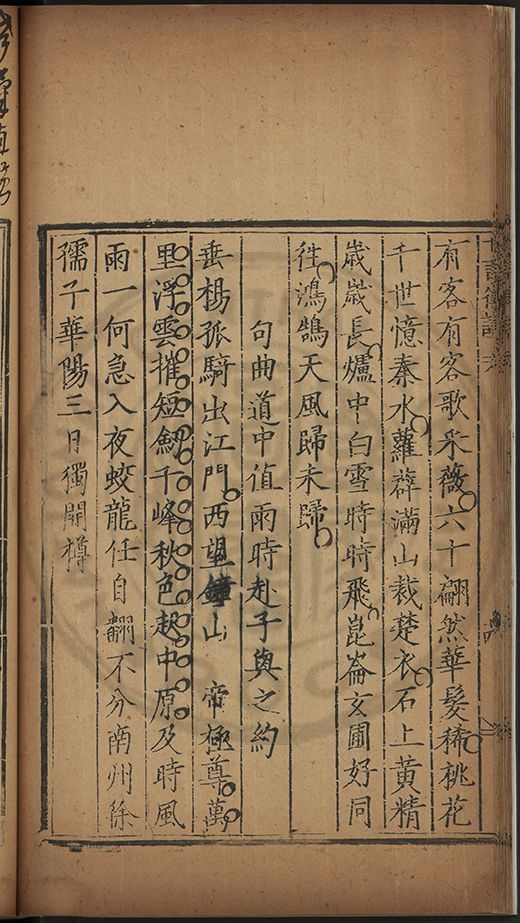 有客有客歌采薇六十翩然華髮稀桃花
千世憶秦水蘿薜滿山裁楚衣石上黃精
歲歲長爐中白雪時時飛崑崙玄圃好同
往鴻鵠天風歸未歸
句曲道中值雨時赴子與之約
垂楊孤騎出江門西望鍾山 帝極尊萬
里浮雲摧短劒千峰秋色起中原及時風
雨一何急入夜蛟龍任自翻不分南州徐
孺子華陽三日獨開樽